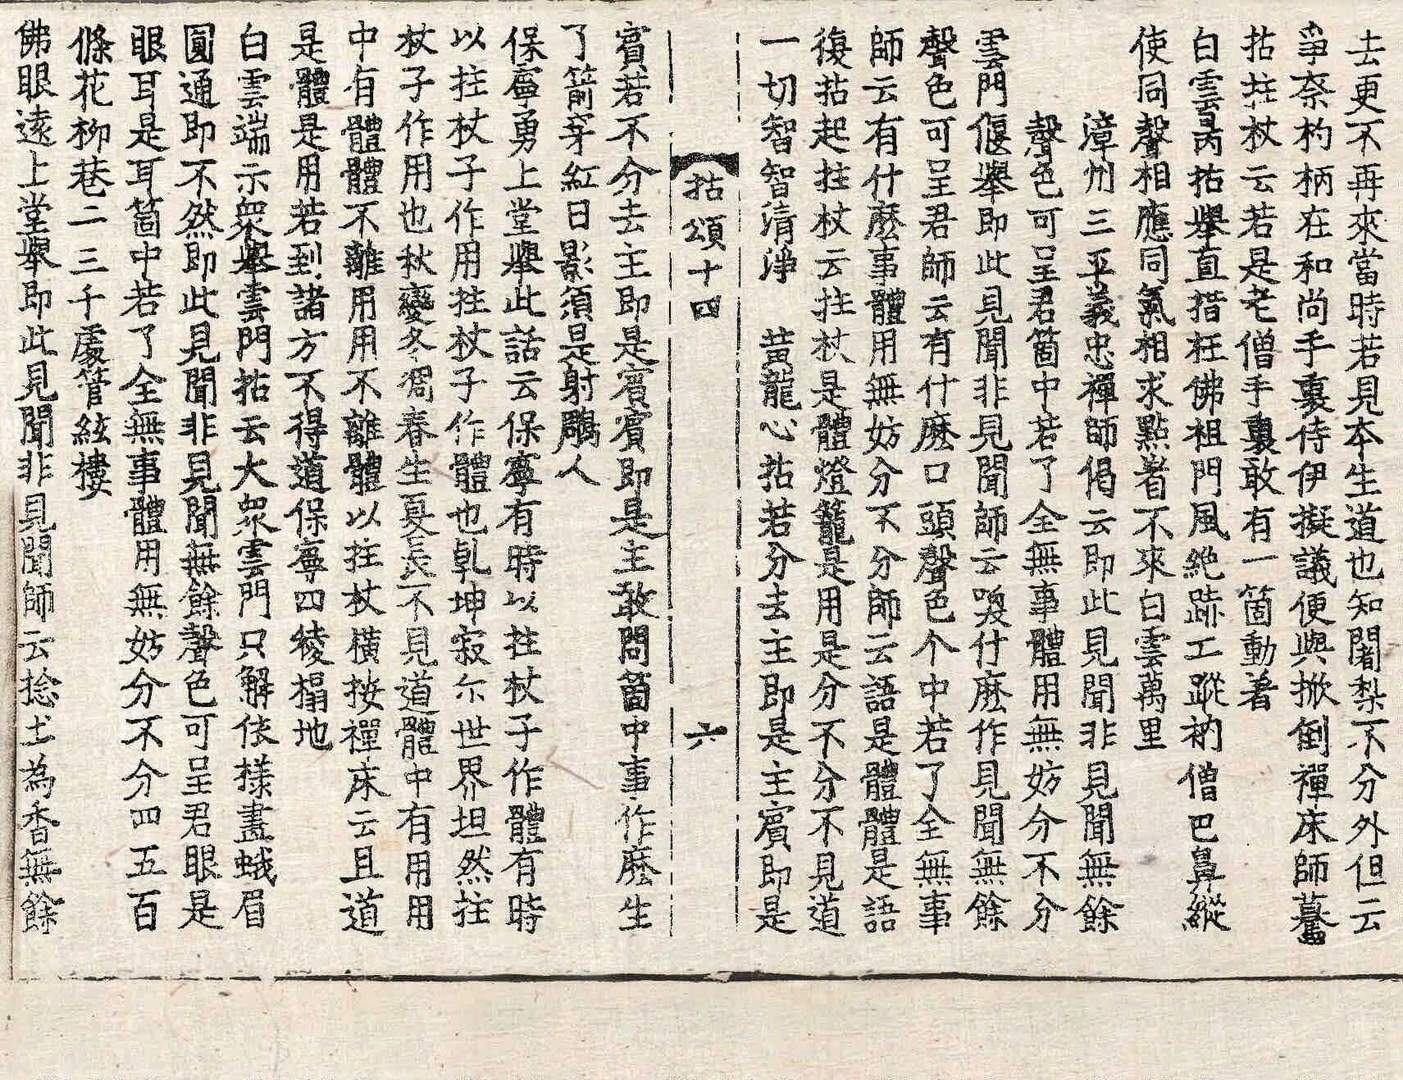 去更不再來當時若見本生道也知闍梨不分外但云
爭奈杓柄在和尚手裏侍伊擬議便與掀倒禪床師驀
拈拄杖云若是老僧手裏敢有一箇動着
白雲昺拈舉直措枉佛祖門風絶跡工蹤衲僧巴鼻縱
使同聲相應同氣相求點著不來白雲萬里
漳州三平義忠禪師偈云即此見聞非見聞無餘
聲色可呈君箇中若了全無事體用無妨分不分
雲門偃舉即此見聞非見聞師云喚什麽作見聞無餘
聲色可呈君師云有什麽口頭聲色个中若了全無事
師云有什麽事體用無妨分不分師云語是體體是語
復拈起拄杖云拄杖是體燈籠是用是分不分不見道
一切智智清淨 黃龍心拈若分去主即是主賓即是
拈頌十四 六
賓若不分去主即是賓賓即是主敢問箇中事作麽生
了箭穿紅日影須是射鵰人
保寧勇上堂舉此話云保寧有時以拄杖子作體有時
以拄杖子作用拄杖子作體也乹坤寂尓世界坦然拄
杖子作用也秋變冬凋春生夏長不見道體中有用用
中有體體不離用用不離體以拄杖橫按禪床云且道
是體是用若到諸方不得道保寧四稜榻地
白雲端示衆舉雲門拈云大衆雲門只解依様畫蛾眉
圓通即不然即此見聞非見聞無餘聲色可呈君眼是
眼耳是耳箇中若了全無事體用無妨分不分四五百
條花柳巷二三千處管絃樓
佛眼遠上堂舉即此見聞非見聞師云捻土為香無餘